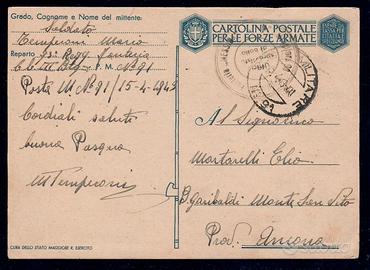 Grado, Cognome e Nome del mittente:
Soldato
Temperoni Mario
Reparto 93° Regg. Fanteria
P. M. N° 91
Posta M N° 91 / 15-4-1943
Cordiali saluti
buona Pasqua
M Temperoni
CURA DELLO STATO MAGGIORE R. ESERCITO
CARTOLINA POSTALE
PER LE FORZE ARMATE
Al Signorino
Martarelli Elio
B. Garibaldi Monte San Vito
Prov. Ancona